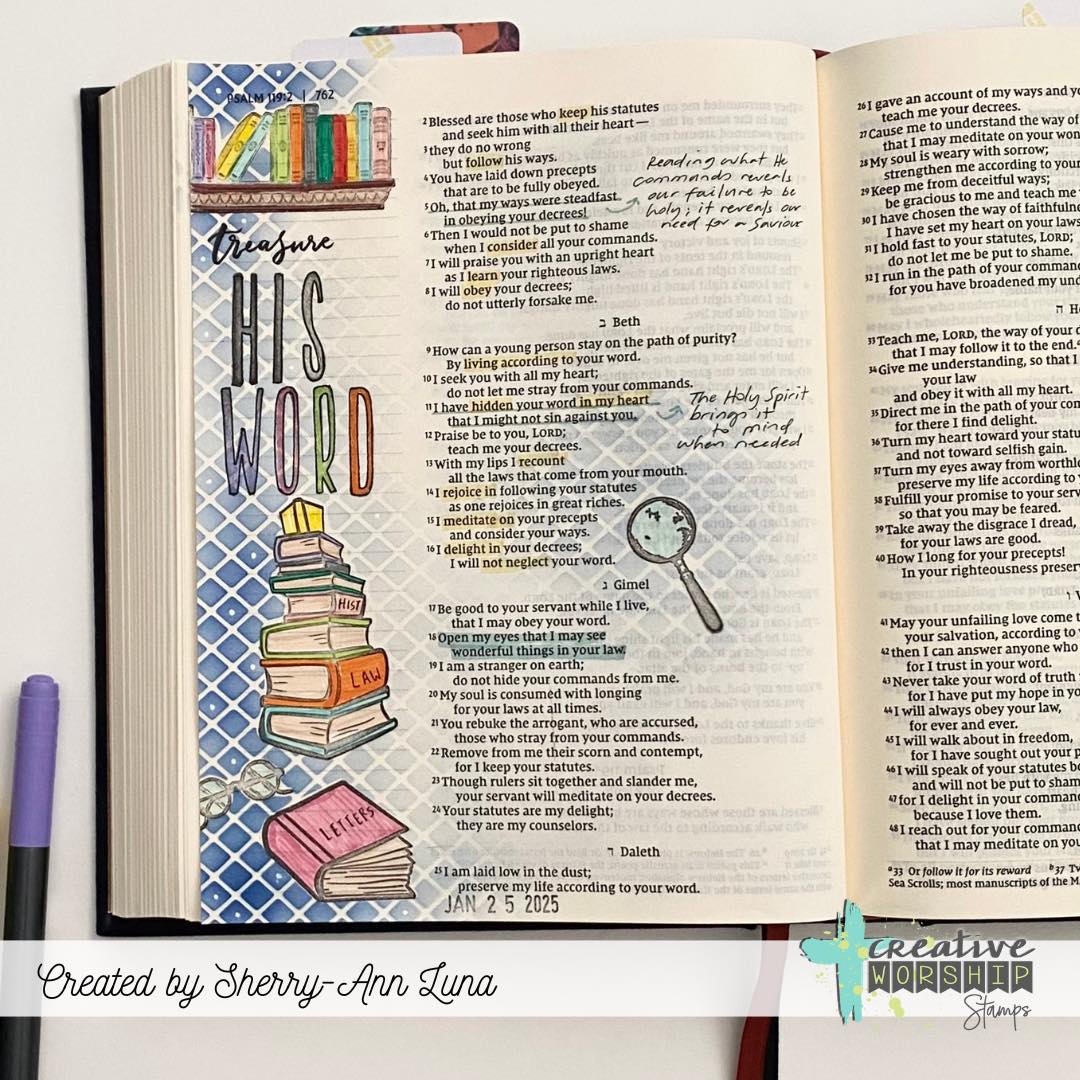 PSALM 119:2 | 762
treasure
HIS
WORD
HIST
LAW
LETTERS
2Blessed are those who keep his statutes
and seek him with all their heart—
3they do no wrong
but follow his ways.
4You have laid down precepts
that are to be fully obeyed.
5Oh, that my ways were steadfast
in obeying your decrees!
6Then I would not be put to shame
when I consider all your commands.
7I will praise you with an upright heart
as I learn your righteous laws.
8I will obey your decrees;
do not utterly forsake me.
Reading what He
commands reveals
our failure to be
holy; it reveals our
need for a Saviour
ב Beth
9How can a young person stay on the path of purity?
By living according to your word.
10I seek you with all my heart;
do not let me stray from your commands.
11I have hidden your word in my heart
that I might not sin against you.
12Praise be to you, LORD;
teach me your decrees.
13With my lips I recount
all the laws that come from your mouth.
14I rejoice in following your statutes
as one rejoices in great riches.
15I meditate on your precepts
and consider your ways.
16I delight in your decrees;
I will not neglect your word.
The Holy Spirit
brings it
to mind
when needed
ג Gimel
17Be good to your servant while I live,
that I may obey your word.
18Open my eyes that I may see
wonderful things in your law.
19I am a stranger on earth;
do not hide your commands from me.
20My soul is consumed with longing
for your laws at all times.
21You rebuke the arrogant, who are accursed,
those who stray from your commands.
22Remove from me their scorn and contempt,
for I keep your statutes.
23Though rulers sit together and slander me,
your servant will meditate on your decrees.
24Your statutes are my delight;
they are my counselors.
ד Daleth
25I am laid low in the dust;
preserve my life according to your word.
JAN 25 2025
26I gave an account of my ways and
teach me your decrees.
27Cause me to understand the way of
that I may meditate on your
28My soul is weary with sorrow;
strengthen me according to your
29Keep me from deceitful ways;
be gracious to me and teach me
30I have chosen the way of
I have set my heart on your
31I hold fast to your statutes, LORD;
do not let me be put to shame.
32I run in the path of your
for you have broadened my
ה
33Teach me, LORD, the way of your
that I may follow it to the end.a
34Give me understanding, so that I
your law
and obey it with all my heart.
35Direct me in the path of your
for there I find delight.
36Turn my heart toward your
and not toward selfish gain.
37Turn my eyes away from
preserve my life according to
38Fulfill your promise to your
so that you may be feared.
39Take away the disgrace I dread,
for your laws are good.
40How I long for your precepts!
In your righteousness
41May your unfailing love come
your salvation, according to
42then I can answer anyone who
for I trust in your word.
43Never take your word of truth
for I have put my hope in
44I will always obey your law,
for ever and ever.
45I will walk about in freedom,
for I have sought out your
46I will speak of your statutes
and will not be put to
47for I delight in your
because I love them.
48I reach out for your
that I may meditate on
a33 Or follow it for its reward b37
Sea Scrolls; most manuscripts of the
Created by Sherry-Ann Luna
creative
WORSHIP
Stamps